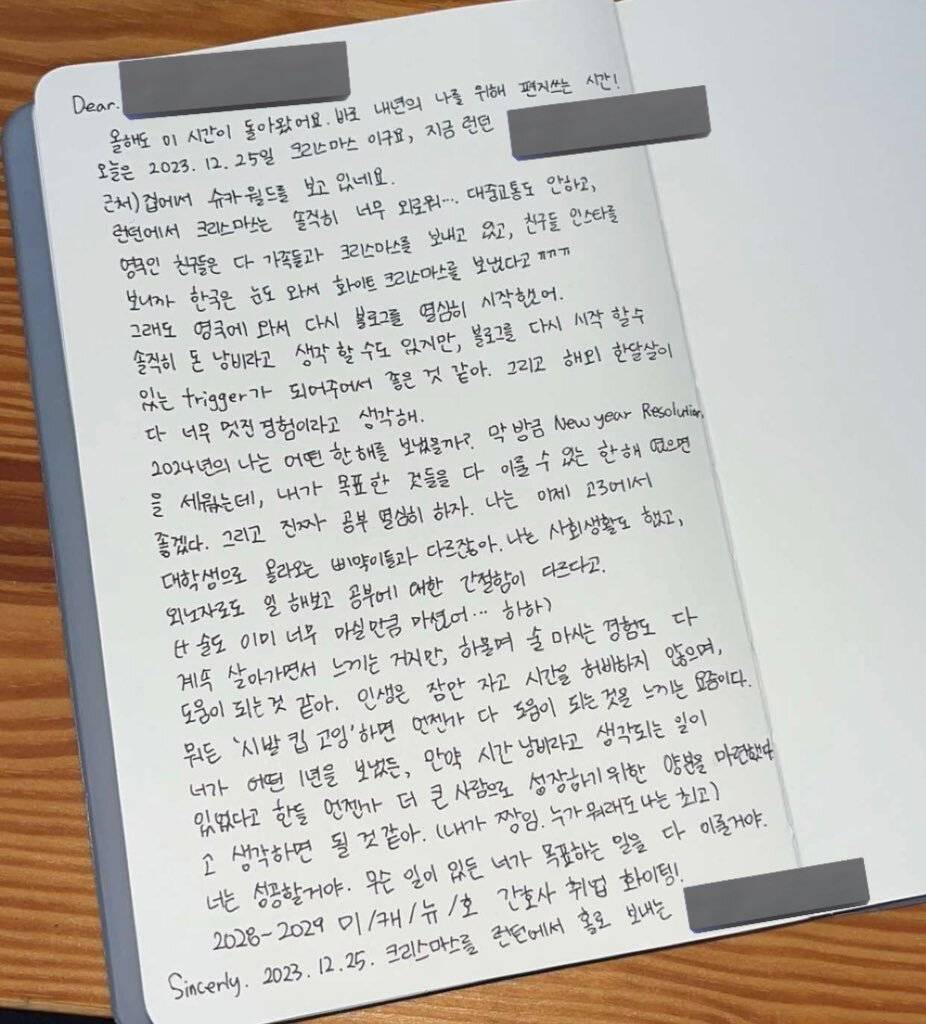 Dear.
올해도 이 시간이 돌아왔어요. 바로 내년의 나를 위해 편지쓰는 시간!
오늘은 2023. 12. 25일 크리스마스 이구요, 지금 런던
근처) 집에서 슈카월드를 보고 있네요.
런던에서 크리스마스는 솔직히 너무 외로워… 대중교통도 안하고,
영국인 친구들은 다 가족들과 크리스마스를 보내고 있고, 친구들 인스타를
보니까 한국은 눈도 와서 화이트 크리스마스를 보냈다고 ㅠㅠㅠ
그래도 영국에 와서 다시 블로그를 열심히 시작했어.
솔직히 돈 낭비라고 생각 할 수도 있지만, 블로그를 다시 시작 할 수
있는 trigger가 되어주어서 좋은 것 같아. 그리고 해외 한달살이
다 너무 멋진 경험이라고 생각해.
2024년의 나는 어떤 한 해를 보냈을까? 막 방금 New year Resolution
을 세웠는데, 내가 목표한 것들을 다 이룰 수 있는 한 해 였으면
좋겠다. 그리고 진짜 공부 열심히 하자. 나는 이제 고3에서
대학생으로 올라오는 삐약이들과 다르잖아. 나는 사회생활도 했고,
외노자로도 일 해보고 공부에 대한 간절함이 다르다고.
(+ 술도 이미 너무 마실만큼 마셨어… 하하)
계속 살아가면서 느끼는 거지만, 하물며 술 마시는 경험도 다
도움이 되는것 같아. 인생은 잠만 자고 시간을 허비하지 않으며,
뭐든 '시발 킵 고잉'하면 언젠가 다 도움이 되는것을 느끼는 요즘이다.
너가 어떤 1년을 보냈든, 만약 시간 낭비라고 생각되는 일이
있었다고 한들 언젠가 더 큰 사람으로 성장하기 위한 양분을 마련했다
고 생각하면 될 것 같아. (내가 짱임. 누가 뭐래도 나는 최고)
너는 성공할거야. 무슨 일이 있든 너가 목표하는 일을 다 이룰거야.
2028~2029 미/캐/뉴/호 간호사 취업 화이팅!
Sincerly. 2023. 12. 25. 크리스마스를 런던에서 홀로 보내는